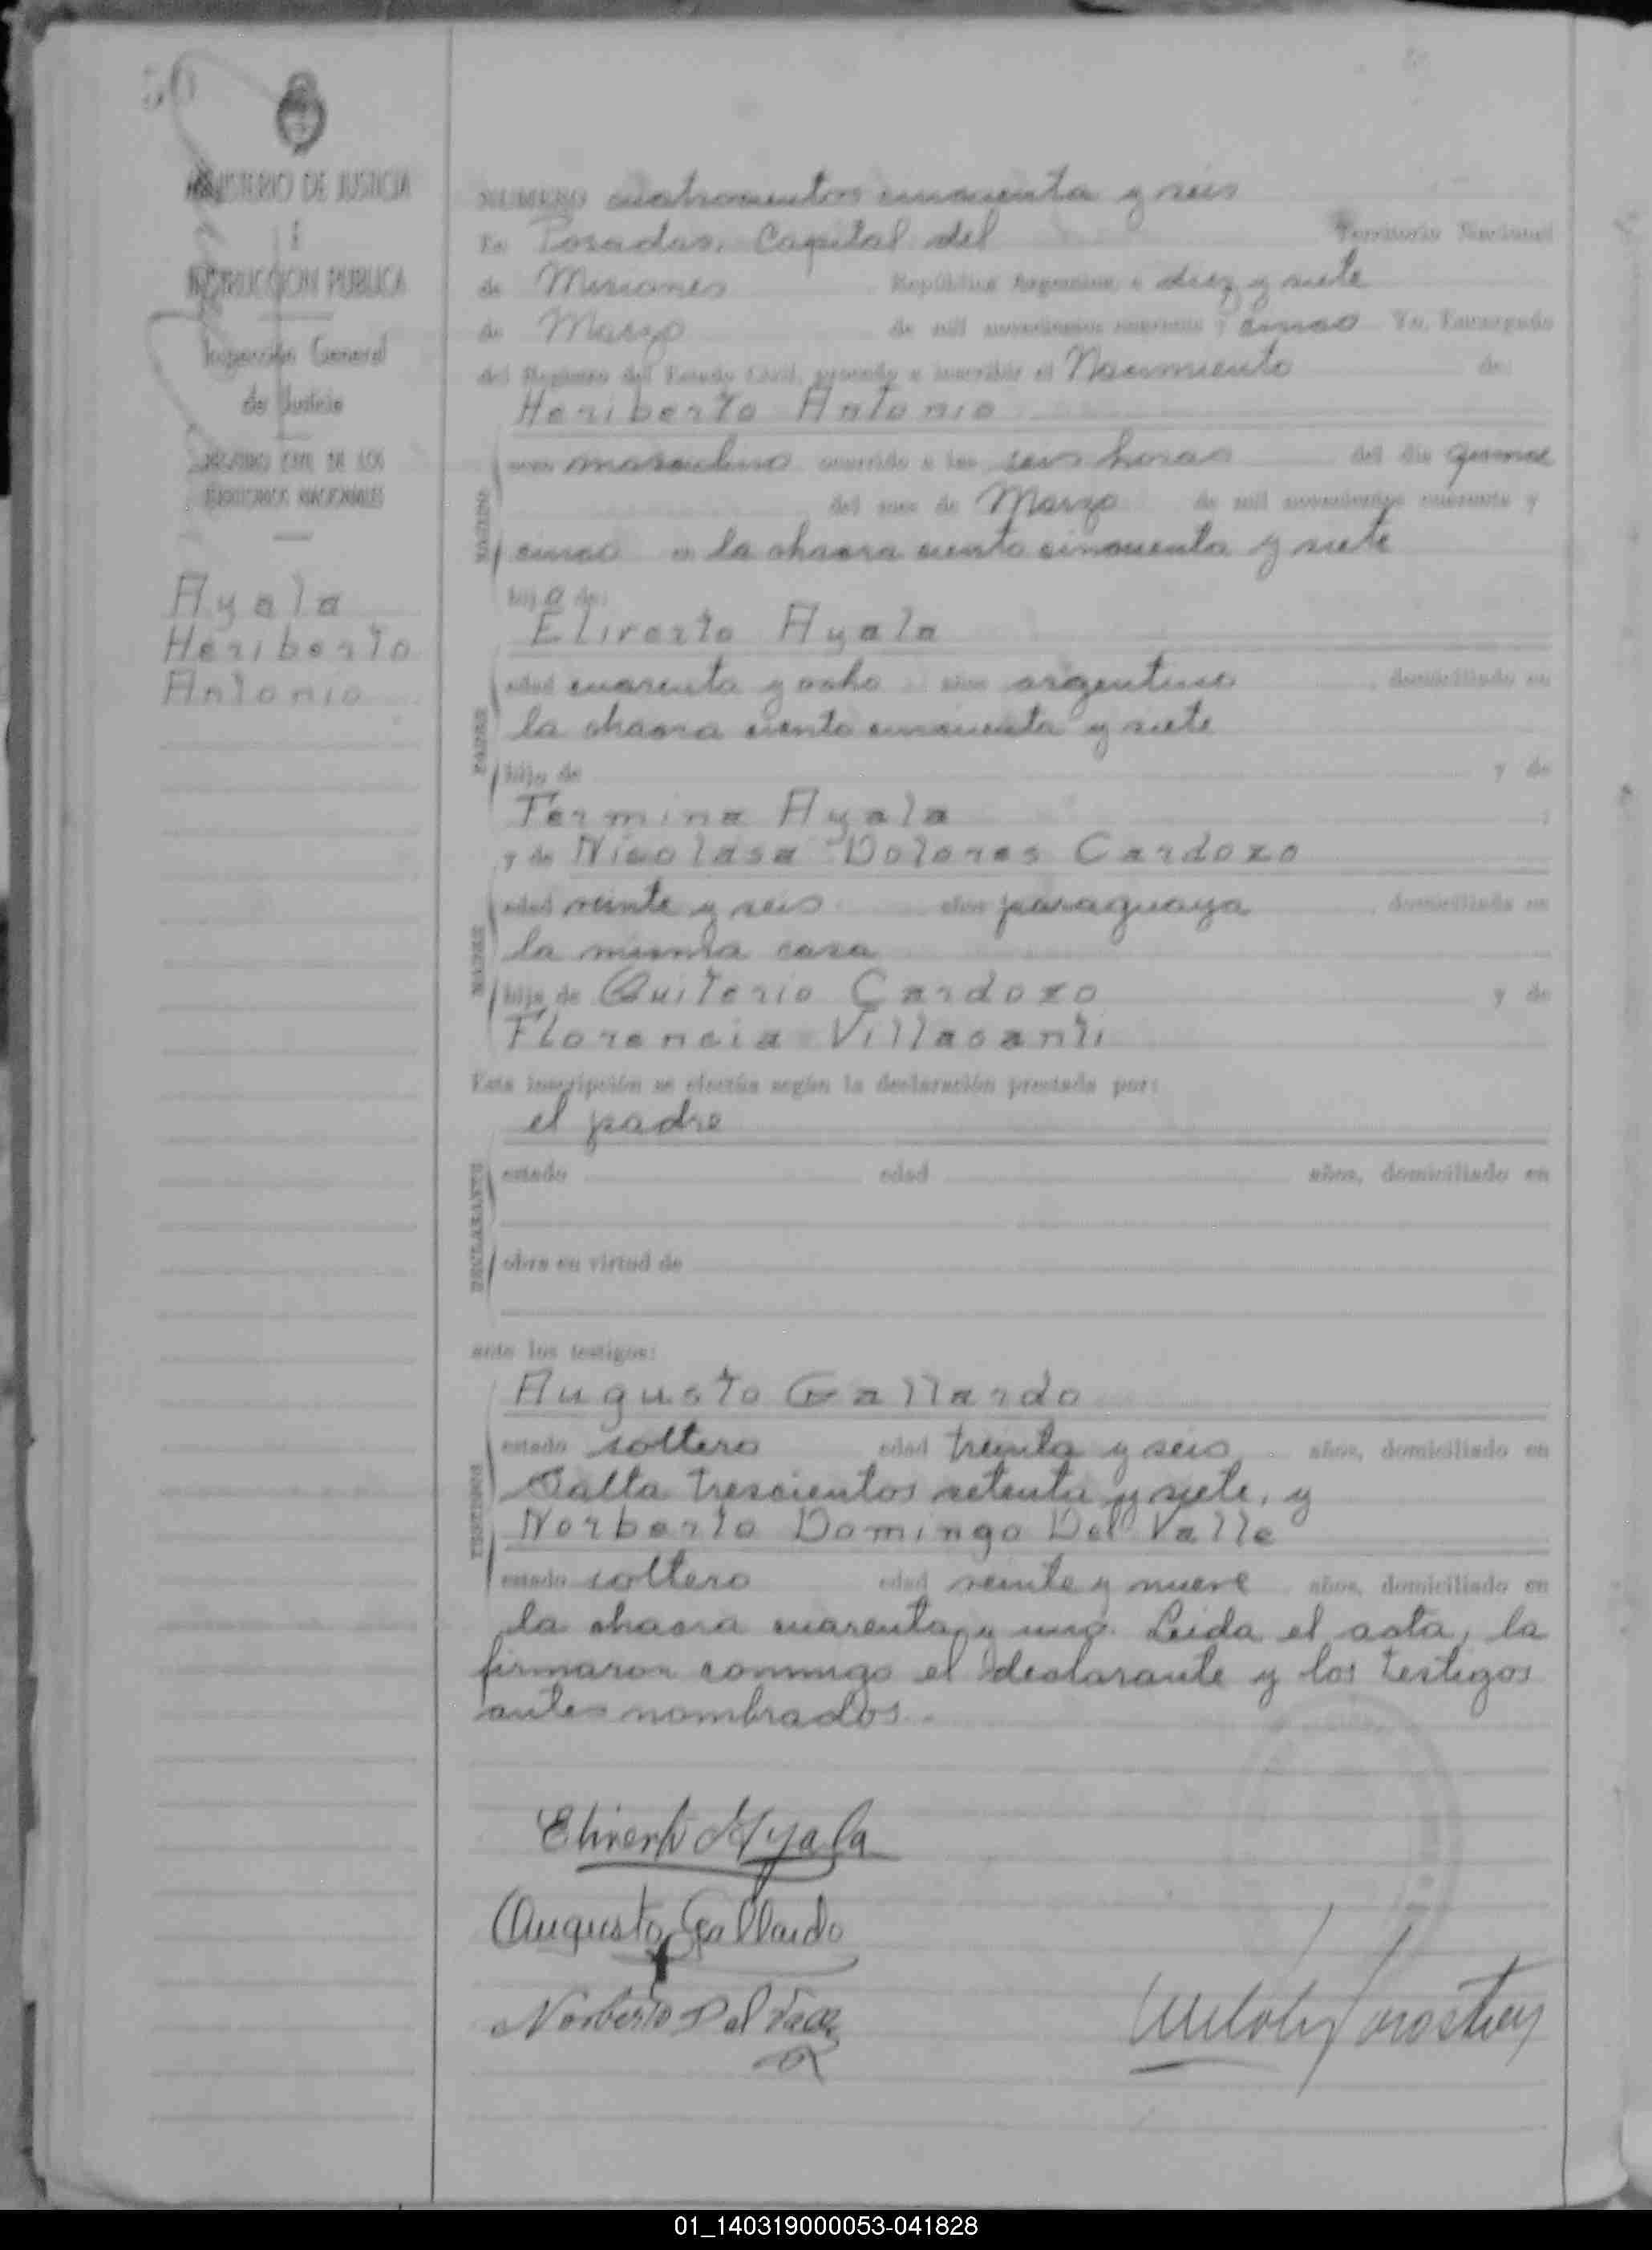 50
MINISTERIO DE JUSTICIA
E
INSTRUCCION PUBLICA
Inspección General
de Justicia
REGISTRO CIVIL DE LOS
TERRITORIOS NACIONALES
Ayala
Heriberto
Antonio
NUMERO cuatrocientos cincuenta y seis
En Posadas, Capital del Territorio Nacional
de Misiones República Argentina, a diez y siete
de Marzo de mil novecientos cuarenta y cinco Yo, Encargado
del Registro del Estado Civil, procedo a inscribir el Nacimiento de:
Heriberto Antonio
NACIDO
sexo masculino ocurrido a las seis horas del día quince
del mes de Marzo de mil novecientos cuarenta y
cinco en la chacra ciento cincuenta y siete
hijo de:
Eliverto Ayala
PADRE
edad cuarenta y ocho años argentino, domiciliado en
la chacra ciento cincuenta y siete
hijo de y de
Termina Ayala ;
y de Nicolasa Dolores Cardozo
MADRE
edad veinte y seis años paraguaya, domiciliada en
la misma casa
hija de Quiterio Cardozo y de
Florencia Villasanti
Esta inscripción se efectúa según la declaración prestada por:
el padre
DECLARANTE
estado edad años, domiciliado en
obra en virtud de
ante los testigos:
Augusto Gallardo
TESTIGOS
estado soltero edad treinta y seis años, domiciliado en
Salta trescientos setenta y siete, y
Norberto Domingo Del Valle
estado soltero edad veinte y nueve años, domiciliado en
la chacra cuarenta y uno. Leida el acta, la
firmaron conmigo el declarante y los testigos
antes nombrados.-
Eliverto Ayala
Augusto Gallardo
Norberto Del Valle
01_140319000053-041828